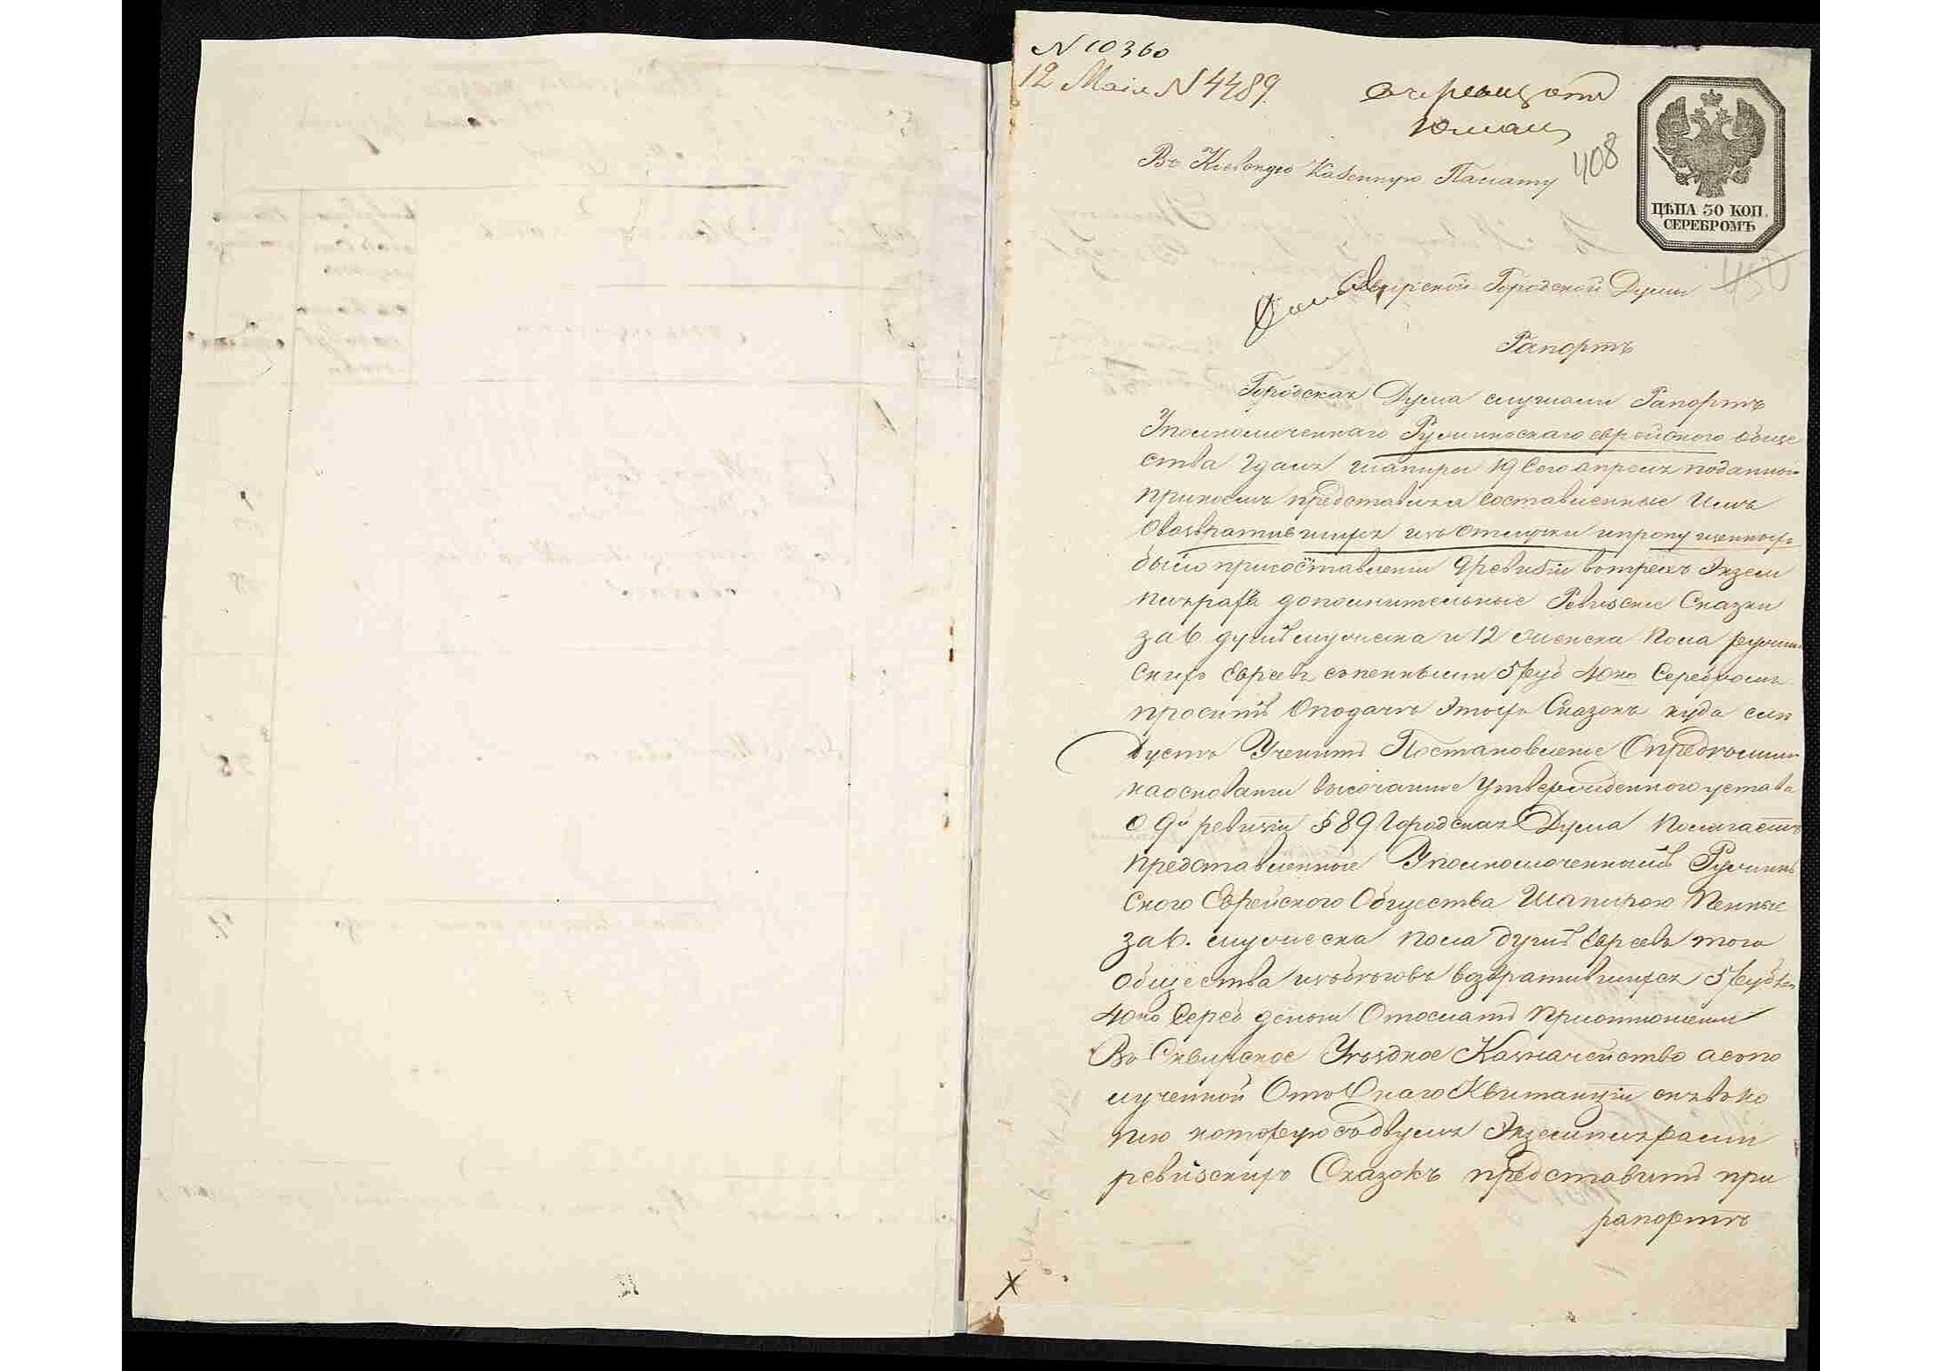 N 10360
12 Маія N 4489.
408
Въ Кіевскую Казенную Палату
ЦѢНА 50 КОП.
СЕРЕБРОМЪ
Сквирской Городской Думы
Рапортъ
Городская Дума слушали Рапортъ
Уполномоченнаго Ружинскаго еврейского обще
ства Шапиры 19 Сего апреля поданной
прикоемъ представила составленные Имъ
Овозвратившихся изъ отлучки ипропущенныхъ
было присоставленіи 9 ревизіи вотрехъ Экзем
плярахъ дополнительные Ревизские Сказки
за 6 душъ мужеска и 12 женска пола ружин
скихъ Евреевъ спенными 5 руб 40 ко Серебромъ
проситъ Оподаче Этихъ Сказокъ куда слѣ
дуетъ Учинить Постановленіе Определили
наосновании высочайше Утвержденного устава
о 9й ревизіи § 89 Городская Дума Полагаетъ
представленные Уполномоченнымъ Ружин
ского Еврейского Общества Шапирою Пенные
за 6. мужеска пола душъ Евреевъ того
Общества изъбеговъ возвратившихся 5 руб
40 ко Сереб деньги Отослать Приотношении
Въ Сквирское Уездное Казначейство асопо
лученной Отъ Онаго Квитанціи снявъ ко
пию которую съдвумя Экземплярами
ревизскихъ Сказокъ представить при
рапортѣ
X